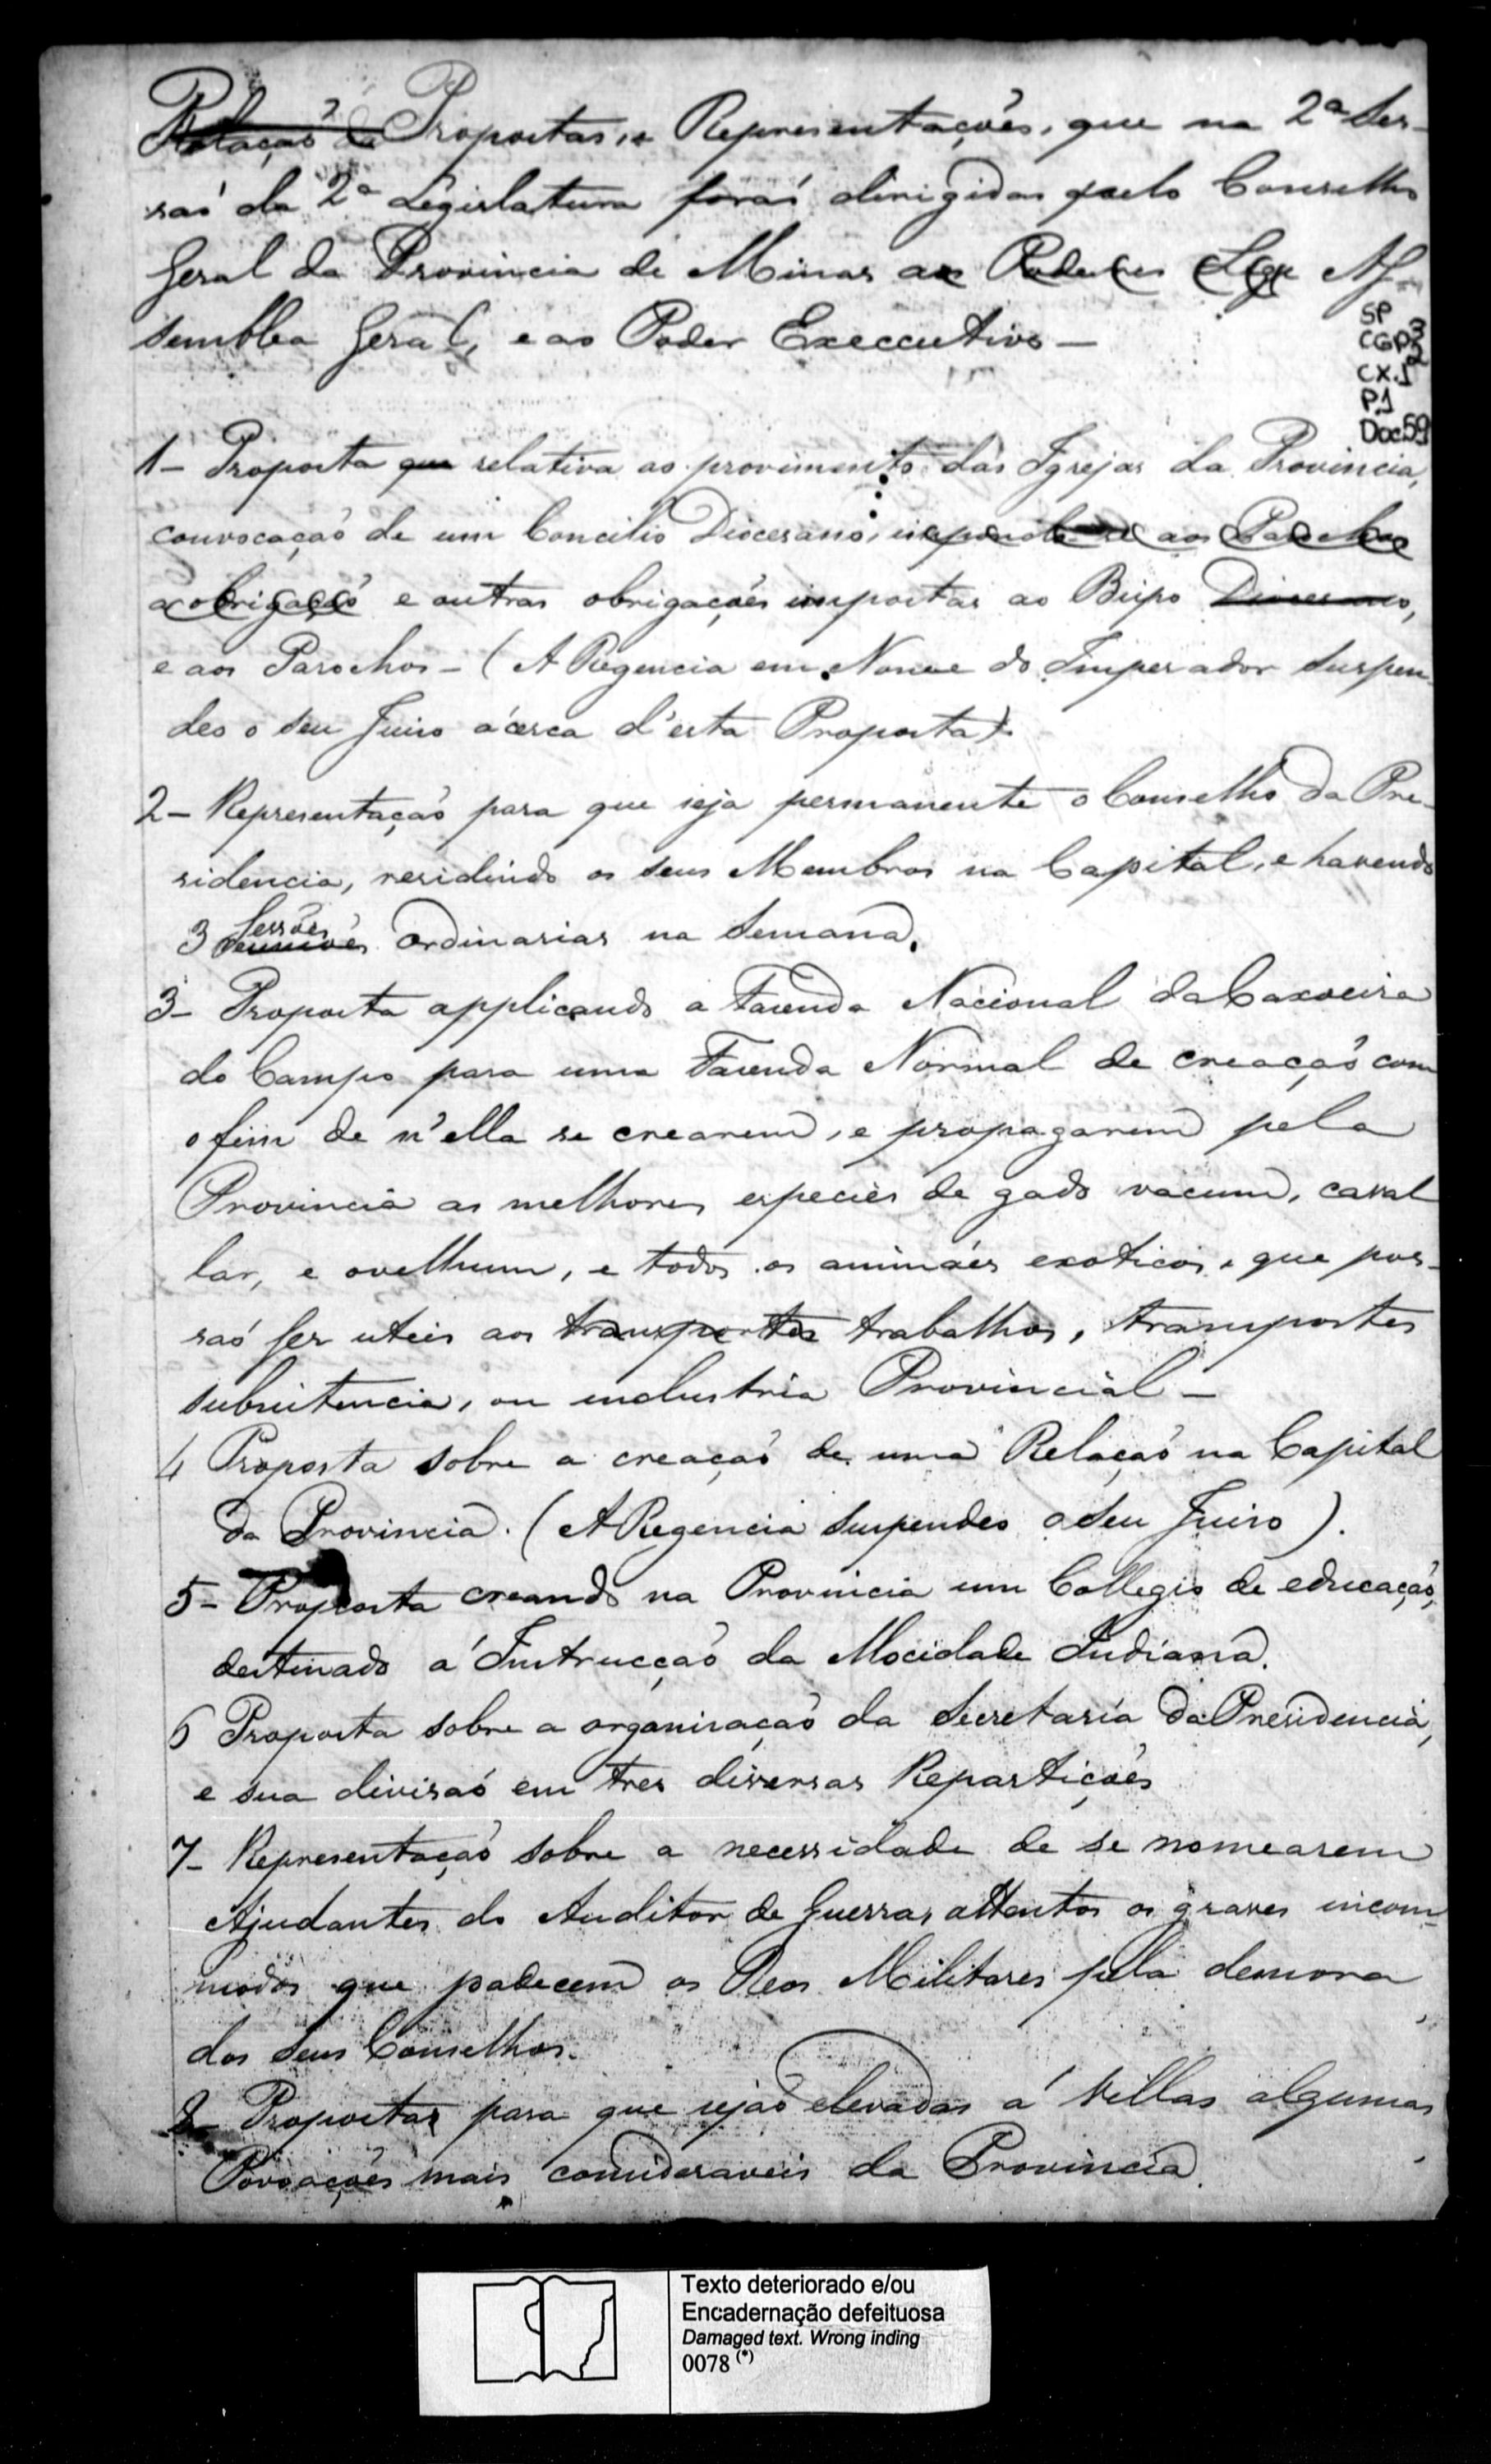 Relação de Propostas, e Representações, que na 2ª Ses-
saó da 2ª Legislatura foraó dirigidas pelo Conselho
Geral da Provincia de Minas aos Poderes Leg As-
semblea Geral, e ao Poder Executivo —
SP
CGP3
2
CX.1
P.1
Doc.59
1 — Proposta que relativa ao provimento das Igrejas da Provincia,
convocaçaó de um Concilio Diocesano, impondo-se aos Parochos
a obrigaçaó e outras obrigações impostas ao Bispo Diocesano,
e aos Parochos — (A Regencia em Nome do Imperador suspen-
deo o seu Juiso ácerca d'esta Proposta).
2 — Representaçaó para que seja permanente o Conselho da Pre-
sidencia, residindo os seus Membros na Capital, e havendo
Sessões
3 reuniões ordinarias na semana.
3 — Proposta applicando a Fazenda Nacional da Caxoeira
do Campo para uma Fazenda Normal de creaçaó com
o fim de n'ella se crearem, e propagarem pela
Provincia as melhores especies de gado vacum, caval
lar, e ovelhum, e todos os animáes exoticos, que pos-
saó ser uteis aos transportes trabalhos, transportes
subsistencia, ou industria Provincial —
4 Proposta sobre a creaçaó de uma Relaçaó na Capital
da Provincia. (A Regencia suspendeo o seu Juiso).
5 — Proposta creando na Provincia um Collegio de educaçaó,
destinado á Instrucçaó da Mocidade Indiana.
6 Proposta sobre a organisaçaó da Secretaria da Presidencia,
e sua divisaó em tres diversas Repartições
7 — Representaçaó sobre a necessidade de se nomearem
Ajudantes do Auditor de Guerra, attentos os graves incom-
modos que padecem os Reos Militares pela demora
dos seus Conselhos.
8 — Propostas para que sejaó elevadas á Villas algumas
Povoações mais consideraveis da Provincia.
Texto deteriorado e/ou
Encadernação defeituosa
Damaged text. Wrong inding
0078 (*)